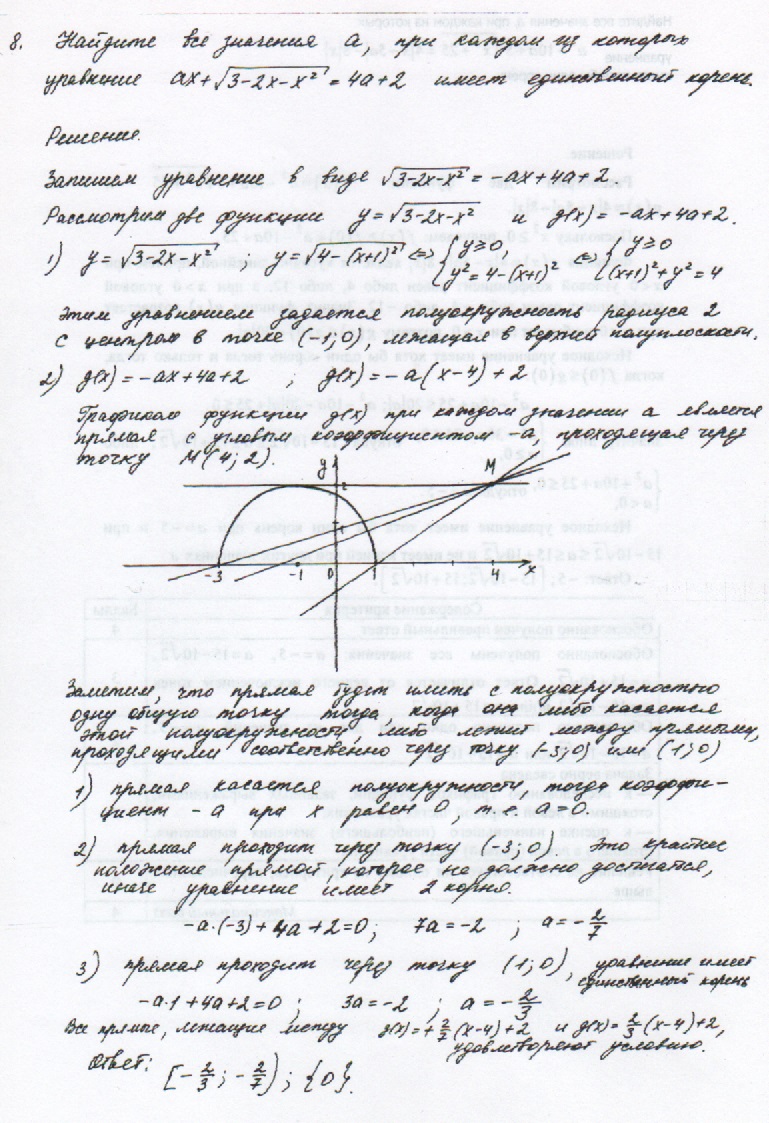 8. Найдите все значения a, при каждом из которых
уравнение ax+√(3-2x-x²) = 4a+2 имеет единственный корень.
Решение.
Запишем уравнение в виде √(3-2x-x²) = -ax+4a+2.
Рассмотрим две функции y=√(3-2x-x²) и g(x) = -ax+4a+2.
1) y=√(3-2x-x²) ; y=√(4-(x+1)²) ⇔ { y≥0 y²=4-(x+1)² ⇔ { y≥0 (x+1)²+y²=4
Этим уравнением задается полуокружность радиуса 2
с центром в точке (-1;0), лежащая в верхней полуплоскости.
2) g(x) = -ax+4a+2 ; g(x) = -a(x-4)+2
Графиком функции g(x) при каждом значении a является
прямая с угловым коэффициентом -a, проходящая через
точку M(4;2).
y M
2
1
-3 -1 0 1 4 x
Заметим, что прямая будет иметь с полуокружностью
одну общую точку тогда, когда она либо касается
этой полуокружности, либо лежит между прямыми,
проходящими соответственно через точку (-3;0) или (1;0)
1) прямая касается полуокружности, тогда коэффи-
циент -a при x равен 0, т.е. a=0.
2) прямая проходит через точку (-3;0) это крайнее
положение прямой, которое не должно достигатся,
иначе уравнение имеет 2 корня.
-a·(-3)+4a+2=0; 7a=-2 ; a=-2/7
3) прямая проходит через точку (1;0), уравнение имеет
единственный корень
-a·1+4a+2=0 ; 3a=-2 ; a=-2/3
Все прямые, лежащие между g(x)=+2/7(x-4)+2 и g(x)=2/3(x-4)+2,
удовлетворяют условию.
Ответ: [-2/3; -2/7) ; {0}.